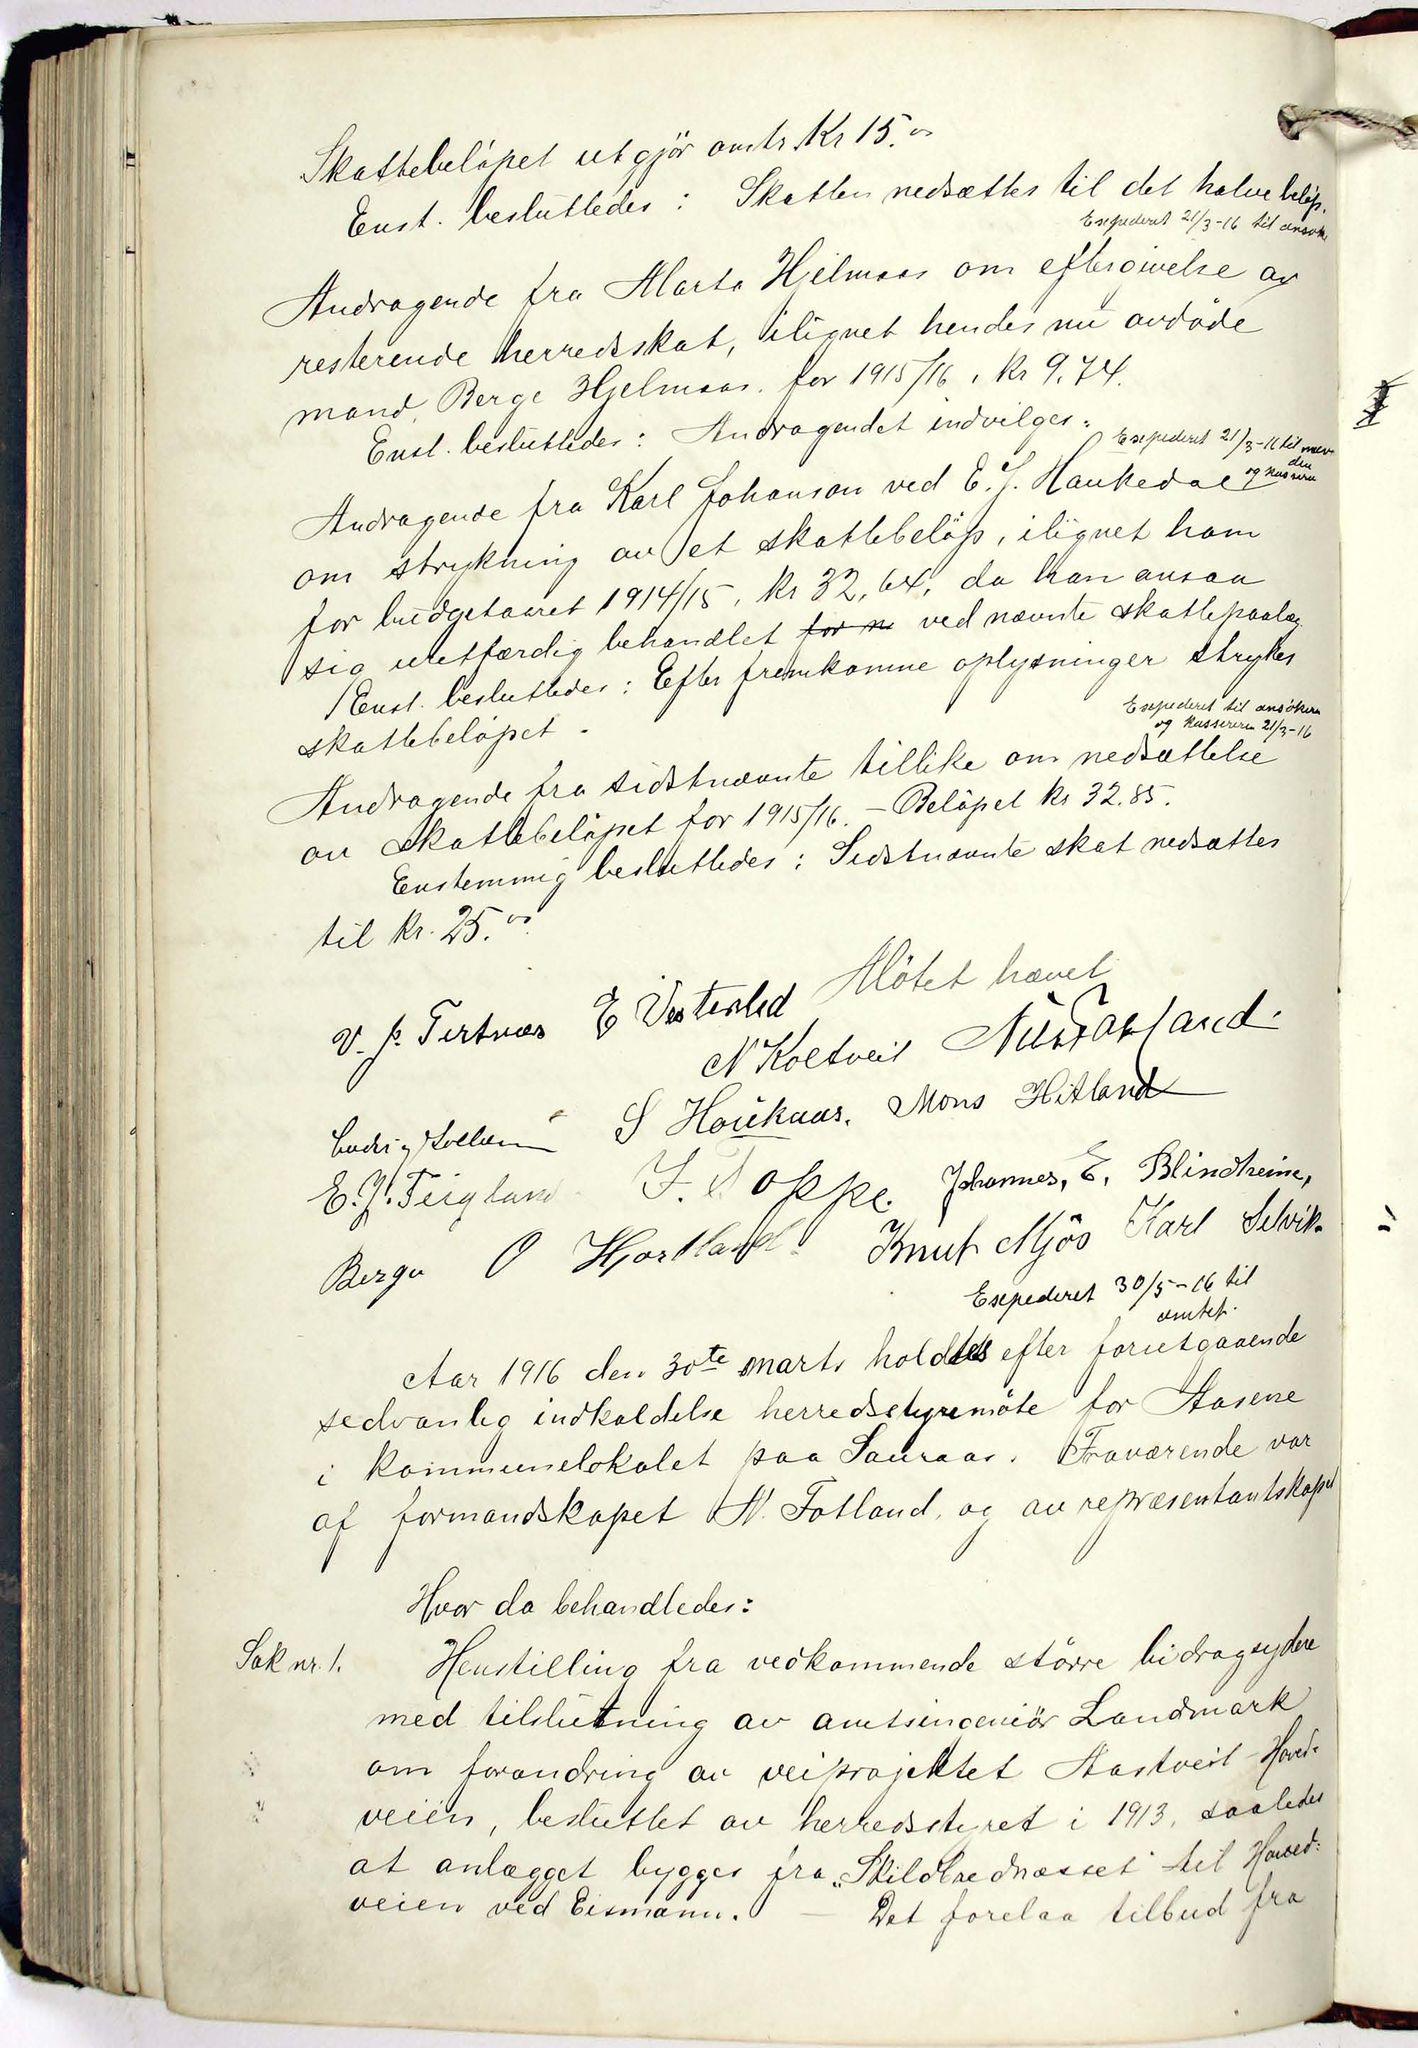 Skattebeløpet utgjør omtr. Kr 15.00
Enst. besluttedes: Skatten nedsættes til det halve beløp.
Exepederet 21/3-16 til ansøk.
Andragende fra Marta Hjelmaas om eftergivelse av
resterende herredsskat, ilignet hendes nu avdøde
mand, Berge Hjelmaas for 1915/16, kr 9.74.
Enst. besluttedes: Andragendet indvilges.
Exepederet 21/3-16 til
og kassereren
Andragende fra Karl Johanson ved E. J. Haukedal
om strykning av et skattebeløp, ilignet ham
for budgetaaret 1914/15, kr 32,64, da han ansaa
sig uretfærdig behandlet for n ved nævnte skattepaalæg.
Enst. besluttedes: Efter fremkomne oplysninger strykes
skattebeløpet.
Exepederet til ansøkeren
og kassereren 21/3-16
Andragende fra sidstnævnte tillike om nedsættelse
av skattebeløpet for 1915/16. – Beløpet kr 32.85.
Enstemmig besluttedes: Sidstnævnte skat nedsættes
til kr. 25.00
Møtet hævet
V. P. Tertnæs E Vesterlid
N Koltveit Nils Fotland.
Ludvig S Haukaas. Mons Hitland
E. J. Teigland. J. Toppe. Johannes, E, Blindheim,
Berge O Hjortland. Knut Mjøs Karl Selvik.
Exepederet 30/5-16 til
amtet.
Aar 1916 den 30te marts holdtes efter forutgaaende
sedvanlig indkaldelse herredsstyremøte for Aasene
i kommunelokalet paa Sauraas. Fraværende var
af formandskapet N. Fotland, og av repræsentantskapet
Hvor da behandledes:
Sak nr. 1. Henstilling fra vedkommende større bidragsydere
med tilslutning av amtsingeniør Landmark
om forandring av veiprojektet Aastveit – Hoved-
veien, besluttet av herredsstyret i 1913, saaledes
at anlægget bygges fra „Skildbrednæsset" til Hoved-
veien ved Eismann. – Det forelaa tilbud fra